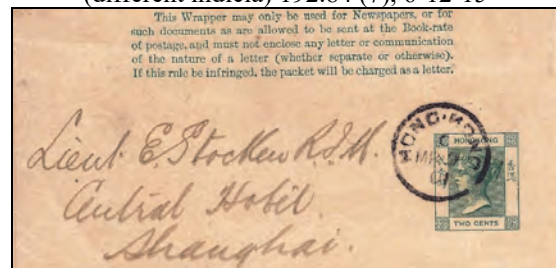 (different indicia) 192.84 (7), 6-12-15
This Wrapper may only be used for Newspapers, or for
such documents as are allowed to be sent at the Book-rate
of postage, and must not enclose any letter or communication
of the nature of a letter (whether separate or otherwise).
If this rule be infringed, the packet will be charged as a letter.
Lieut. E. Stocker
Central Hotel
Shanghai.
HONG·KONG
C
01
HONGKONG
TWO CENTS